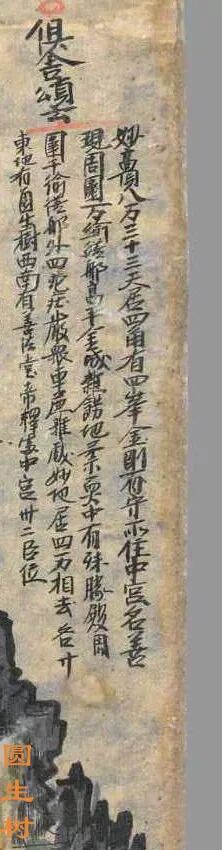 俱舍頌云
妙高頂八万三十三天居四角有四峯金剛手守所住中宮名善
現周圍万踰繕那高半金城雜飾地柔耎中有殊勝殿周
圍千踰繕那外四苑莊嚴眾車麁雜戲妙地居四方相去各廿
東北有圓生樹西南有善法堂帝釋宮中定卅二臣位
圆生树